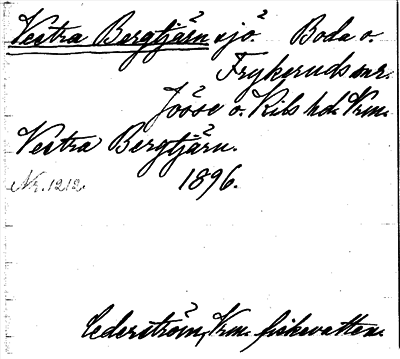 Vestra Bergtjärn sjö. Boda o.
Frykeruds snr.
Jösse o. Kils hd. Vrm.
Vestra Bergtjärn.
Nr. 1212. 1896.
Cederström, Vrm. fiskevatten.